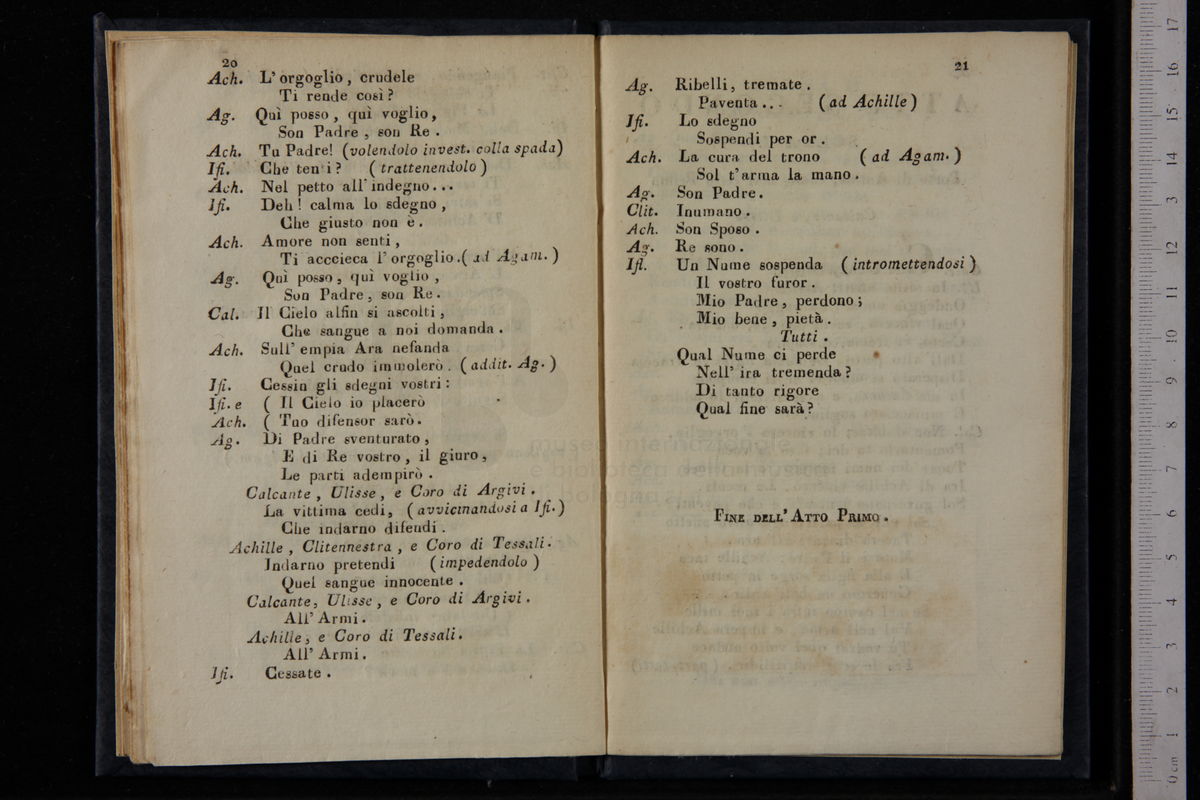 20
Ach. L' orgoglio, crudele
Ti rende così?
Ag. Quì posso, quì voglio,
Son Padre, son Re.
Ach. Tu Padre! (volendolo invest. colla spada)
Ifi. Che tenti? (trattenendolo)
Ach. Nel petto all' indegno...
Ifi. Deh! calma lo sdegno,
Che giusto non è.
Ach. Amore non senti,
Ti acccieca l' orgoglio. (ad Agam.)
Ag. Quì posso, quì voglio,
Son Padre, son Re.
Cal. Il Cielo alfin si ascolti,
Che sangue a noi domanda.
Ach. Sull' empia Ara nefanda
Quel crudo immolerò. (addit. Ag.)
Ifi. Cessin gli sdegni vostri:
Ifi. e ( Il Cielo io placerò
Ach. ( Tuo difensor sarò.
Ag. Di Padre sventurato,
E di Re vostro, il giuro,
Le parti adempirò.
Calcante, Ulisse, e Coro di Argivi.
La vittima cedi, (avvicinandosi a Ifi.)
Che indarno difendi.
Achille, Clitennestra, e Coro di Tessali.
Indarno pretendi (impedendolo)
Quel sangue innocente.
Calcante, Ulisse, e Coro di Argivi.
All' Armi.
Achille, e Coro di Tessali.
All' Armi.
Ifi. Cessate.
21
Ag. Ribelli, tremate.
Paventa... (ad Achille)
Ifi. Lo sdegno
Sospendi per or.
Ach. La cura del trono (ad Agam.)
Sol t'arma la mano.
Ag. Son Padre.
Clit. Inumano.
Ach. Son Sposo.
Ag. Re sono.
Ifi. Un Nume sospenda (intromettendosi)
Il vostro furor.
Mio Padre, perdono;
Mio bene, pietà.
Tutti.
Qual Nume ci perde
Nell' ira tremenda?
Di tanto rigore
Qual fine sarà?
FINE DELL' ATTO PRIMO.
museo internazionale
e biblioteca della musica
di bologna
0 cm 1 2 3 4 5 6 7 8 9 10 11 12 13 14 15 16 17